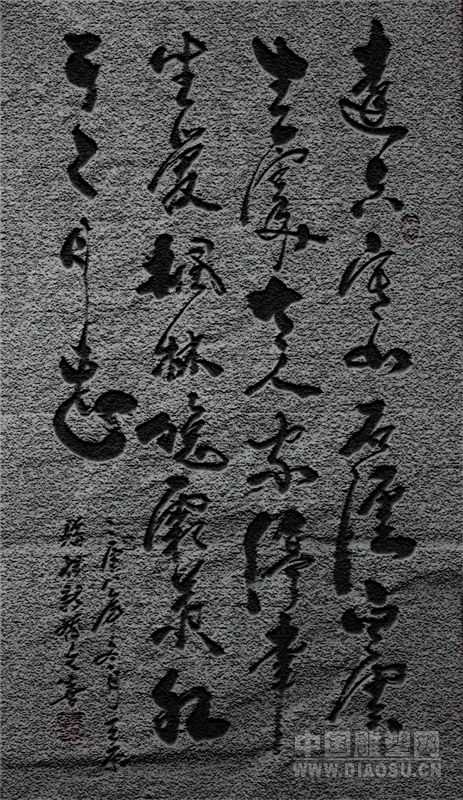 遠上寒山石徑白雲
生處有人家停車
坐愛楓林晚霜葉紅
于二月花
中国雕塑网
WWW.DIAOSU.CN